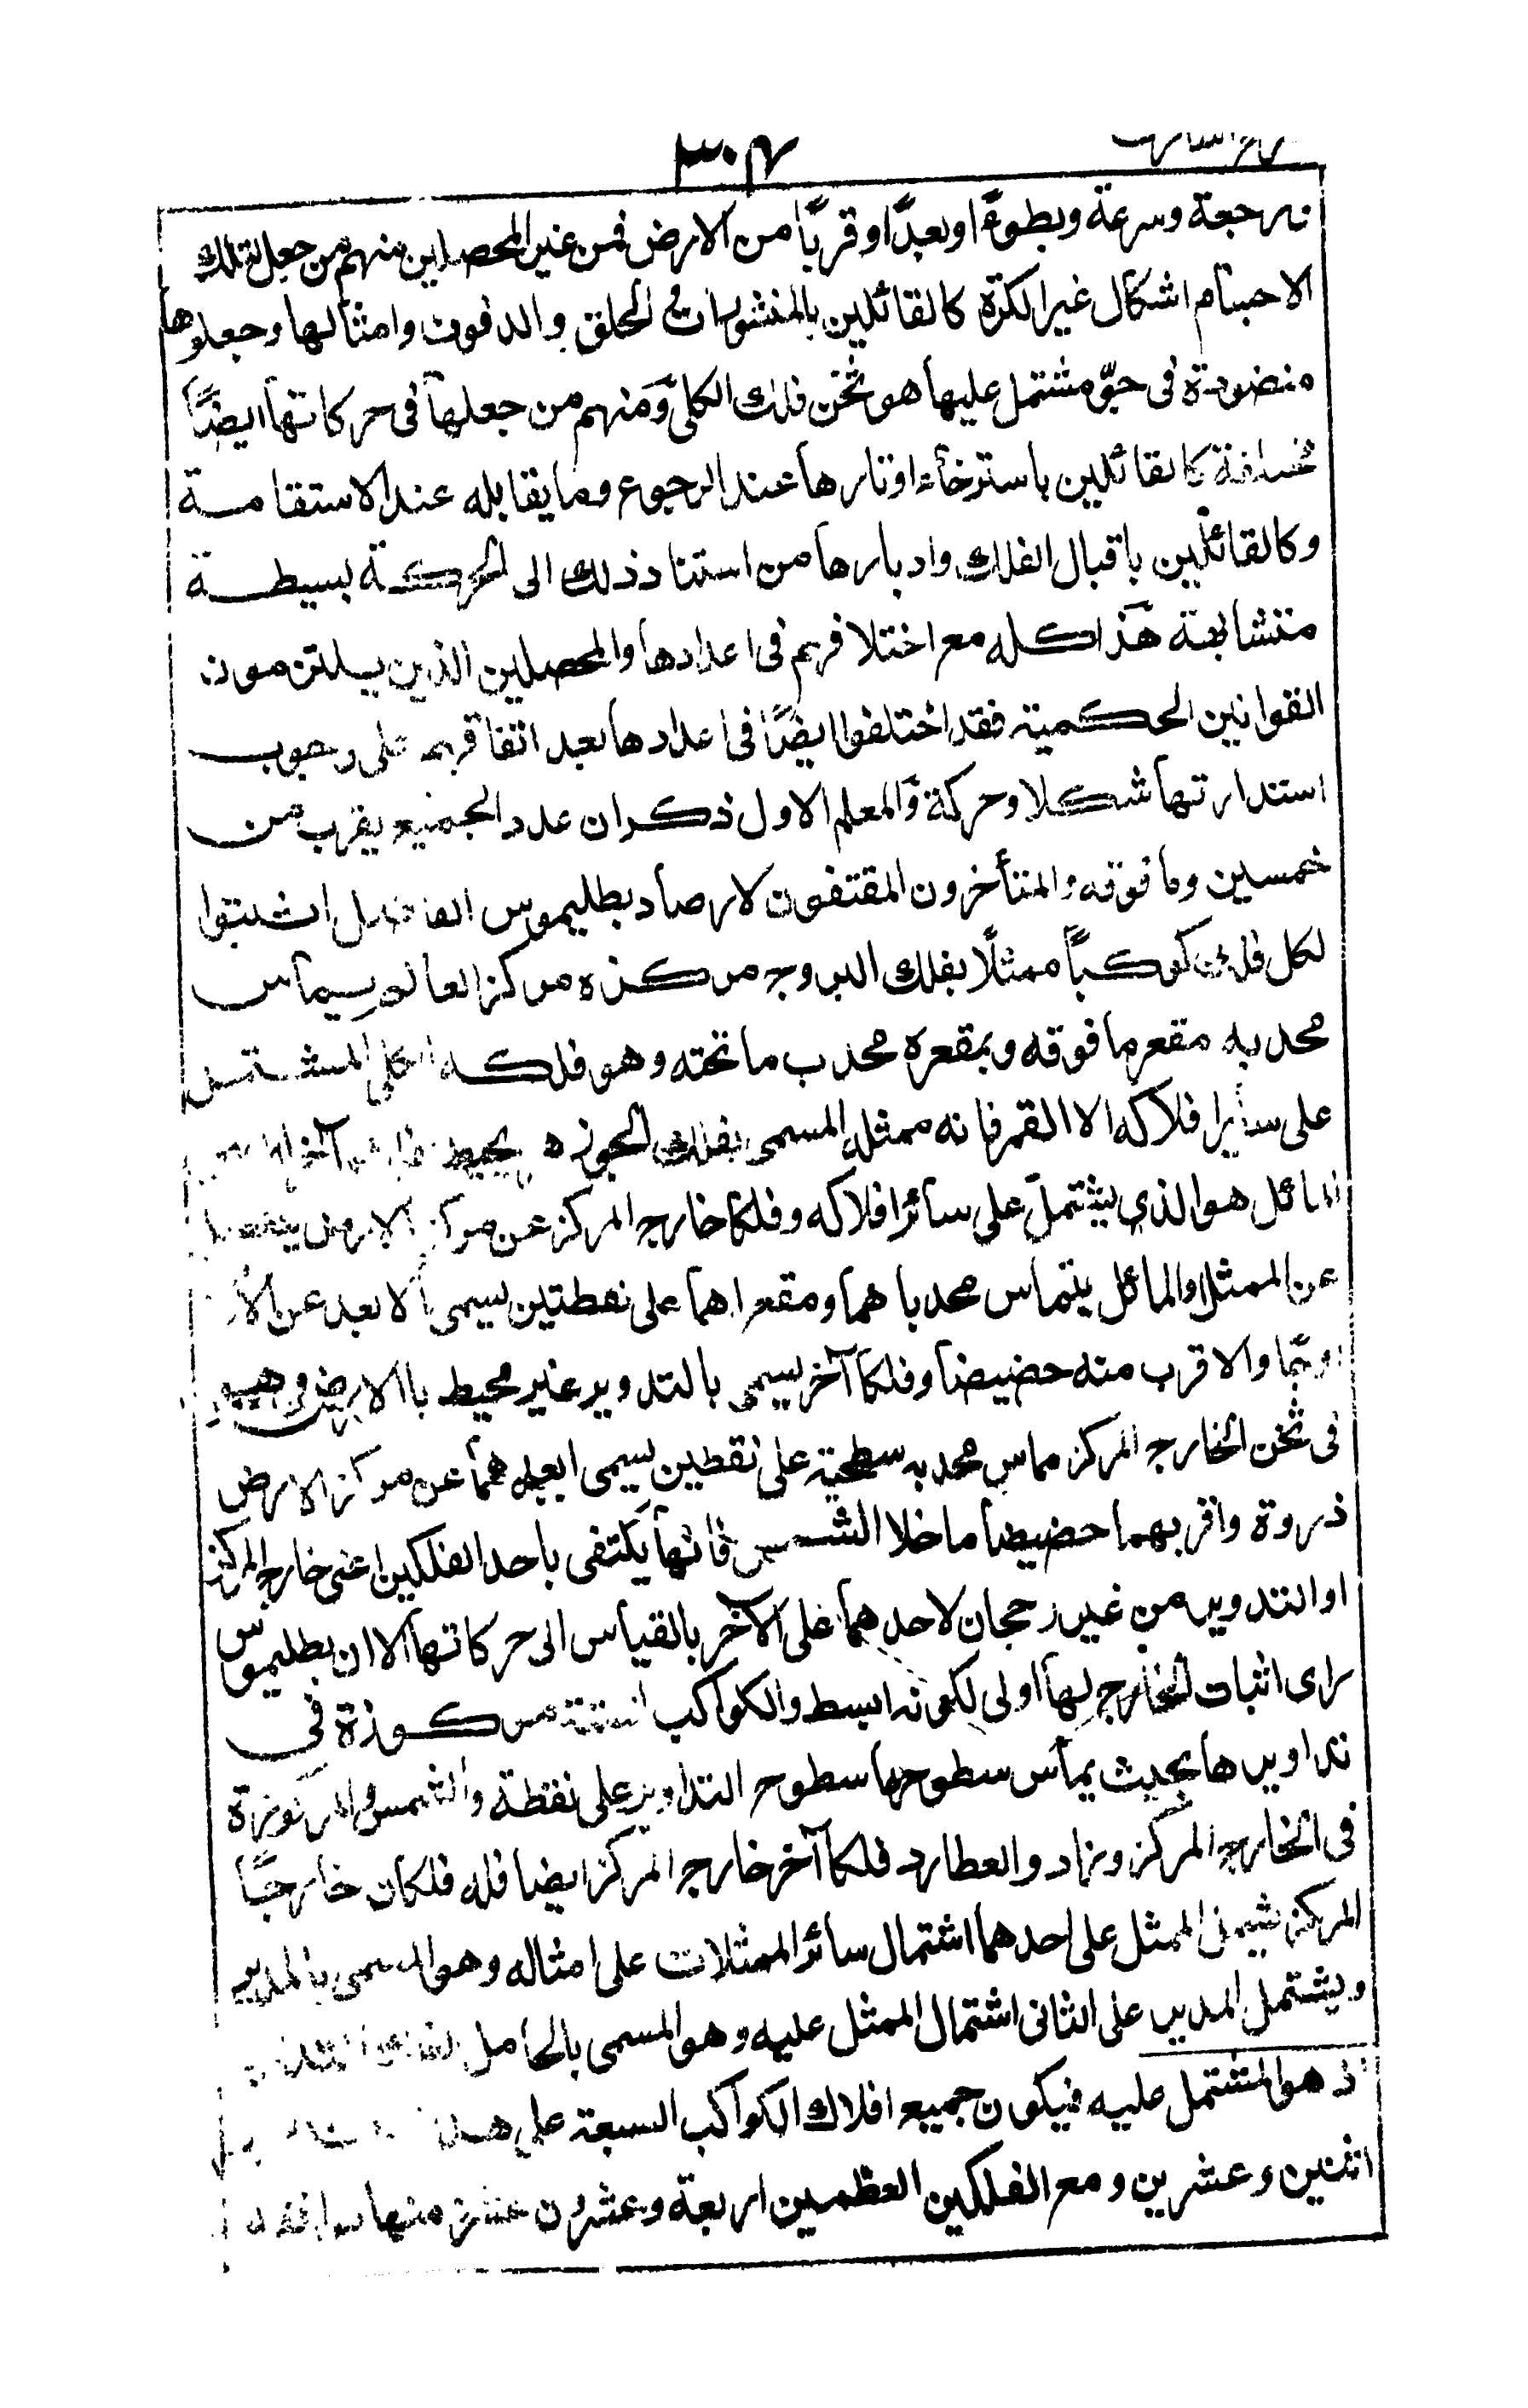 ٣٠٤
ورجعة وسرعة وبطوءً اوبعدًا وقربًا من الارض فمن غير المحصلين منهم من جعل لتلك
الاجسام اشكال غير الكرة كالقائلين بالمنشورات والحلق والدفوف وامثالها وجعلوها
منضودة فى جوّ مشتمل عليها هو ثخن فلك الكلى ومنهم من جعلها فى حركاتها ايضًا
مختلفة كالقائلين باسترخاء اوتارها عند الرجوع وما يقابله عند الاستقامة
وكالقائلين باقبال الفلك وادبارها من استناد ذلك الى حركة بسيطة
متشابهة هذا كله مع اختلافهم فى اعدادها والمحصلين الذين يلتزمون
القوانين الحكمية فقد اختلفوا ايضًا فى اعدادها بعد اتفاقهم على وجوب
استدارتها شكلا وحركة والمعلم الاول ذكر ان عدد الجميع يقرب من
خمسين وما فوقه والمتأخرون المقتفون لارصاد بطليموس الفاضل اثبتوا
لكل فلك كوكبًا ممثلًا بفلك البروج مركزه مركز العالم يماس
محدبه مقعر ما فوقه وبمقعره محدب ما تحته وهو فلكه الكلى المشتمل
على سائر افلاكه الا القمر فانه ممثله المسمى بفلك الجوزهر يحيط
المائل هو الذى يشتمل على سائر افلاكه وفلكا خارج المركز عن مركز الارض ينفصل
عن الممثل والمائل يتماس محدباهما ومقعراهما على نقطتين يسمى الابعد عن الارض
اوجًا والاقرب منه حضيضا وفلكا آخر يسمى بالتدوير غير محيط بالارض وهو
فى ثخن الخارج المركز مماس محدبه سطحيه على نقطين يسمى ابعدهما عن مركز الارض
ذروة واقربهما حضيضا ما خلا الشمس فانها يكتفى باحد الفلكين اعنى خارج المركز
او التدوير من غير رجحان لاحدهما على الآخر بالقياس الى حركاتها الا ان بطليموس
راى اثبات الخارج لها اولى لكونه ابسط والكواكب الستة مركوزة فى
تداويرها بحيث يماس سطوحها سطوح التداوير على نقطة والشمس مركوزة
فى الخارج المركز وزاد والعطارد فلكا آخر خارج المركز ايضا فله فلكان خارجا
المركز يشتمل الممثل على احدهما اشتمال سائر الممثلات على امثاله وهو المسمى بالمدير
ويشتمل المدير على الثانى اشتمال الممثل عليه وهو المسمى بالحامل
اذ هو المشتمل عليه فيكون جميع افلاك الكواكب السبعة على هذا
اثنين وعشرين ومع الفلكين العظمين اربعة وعشرون عشر منها